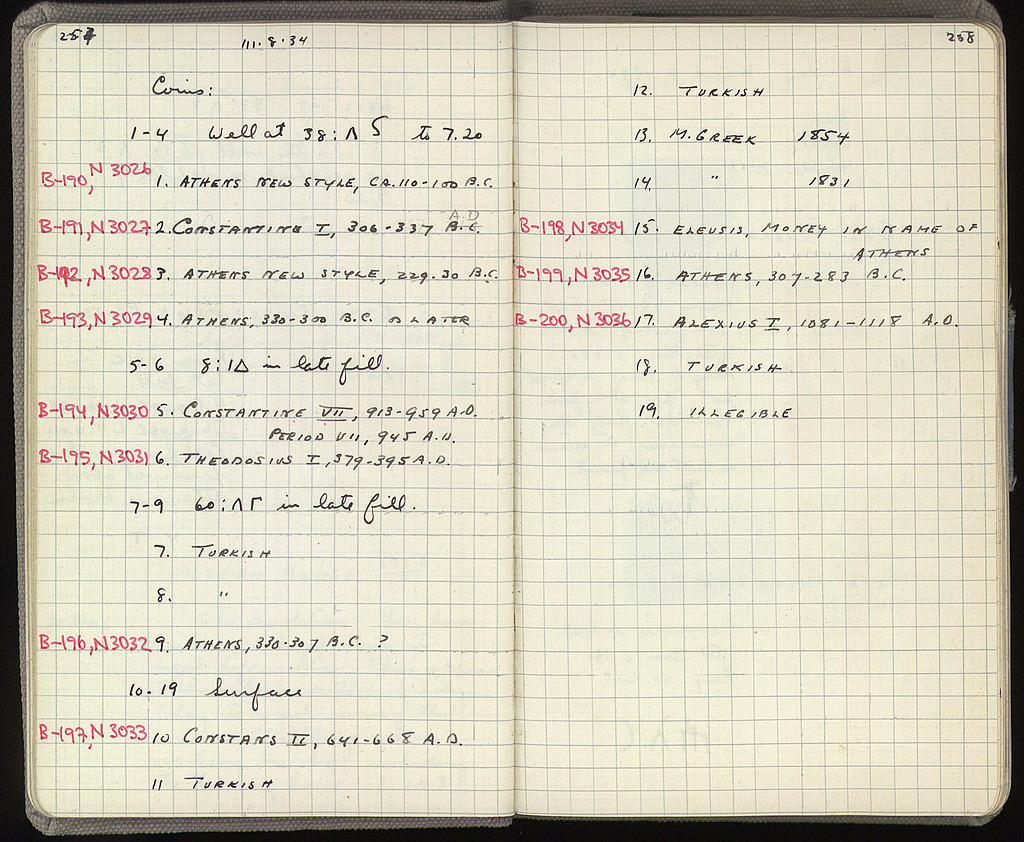 257
111.8.34
Coins:
1-4 Well at 38:Λ S to 7.20
B-190, N 3026 1. ATHENS NEW STYLE, CA. 110-100 B.C.
A.D
B-191, N3027 2. CONSTANTINE I, 306-337 B.C.
B-192, N3028 3. ATHENS NEW STYLE, 229-30 B.C.
B-193, N3029 4. ATHENS, 330-300 B.C. OR LATER
5-6 8:ΙΔ in late fill.
B-194, N3030 5. CONSTANTINE VII, 913-959 A.D.
PERIOD VII, 945 A.D.
B-195, N3031 6. THEODOSIUS I, 379-395 A.D.
7-9 60:ΛΓ in late fill.
7. TURKISH
8. "
B-196, N3032 9. ATHENS, 330-307 B.C. ?
10-19 Surface
B-197, N3033 10 CONSTANS II, 641-668 A.D.
11 TURKISH
258
12. TURKISH
13. M. GREEK 1854
14. " 1831
B-198, N3034 15. ELEUSIS, MONEY IN NAME OF
ATHENS
B-199, N3035 16. ATHENS, 307-283 B.C.
B-200, N3036 17. ALEXIUS I, 1081-1118 A.D.
18. TURKISH
19. ILLEGIBLE